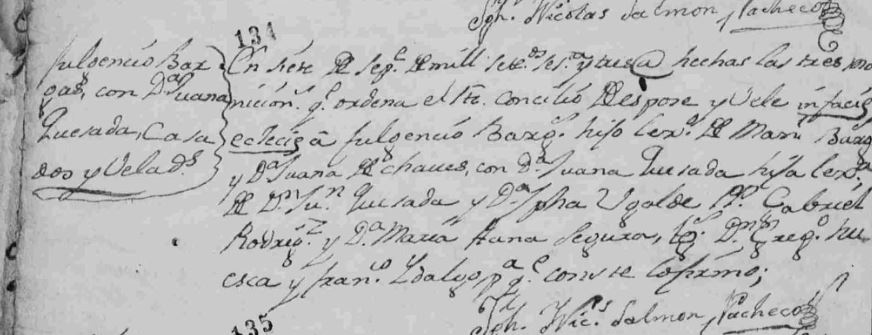 Jph. Nicolas Salmon, y Pacheco
134
fulgencio Bar
gas, con Da. Juana
Quesada, Casa
dos y Velads.
En siete de Sepe. de mill sete.os ses.a y tres hechas las tres mo
nicions. qe. ordena el sto. Concilio Despose y Vele infacie
eclecie a fulgencio Barg.s hijo lexo. de Man.l Barg.s
y Da. Juana de chaves, con Da. Juana Quesada hija lexa.
de Dn. Jun. Quesada y Da. Jpha Ugalde Ps. Gabriel
Rodrig.z y Da. Maria Hana Segura, tgs. Dn. Greg.o hu
esca y fran.co Ydalgo, pa. qe. conste lo firmo;
Jph. Nics. Salmon, y Pacheco
135